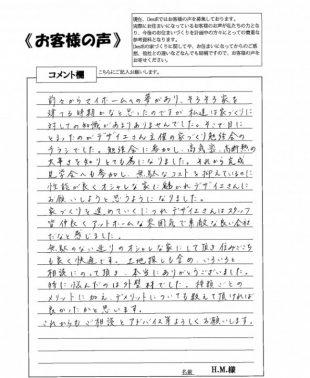 《お客様の声》
現在、Dezieではお客様の声を募集しております。
実際にお住まいになっているお客様のお声が私たちの力となり、今後のお住まいづくりを計画中の方々にとっての貴重な参考資料となります。
お客様の声をお寄せください。
コメント欄
こちらにご記入お願いします。
前々からマイホームへの夢があり、そろそろ家を
建てる時期かなと思ったのですが私達は家づくりに
対しての知識があまりありませんでした。そこで目に
とまったのがデザイエさん主催の家づくり勉強会の
チラシでした。勉強会に参加し、高気密、高断熱の
大事さを知りとても為になりました。それから完成
見学会へも参加し、無駄なコストを抑えているのに
性能が良くオシャレな家に魅かれデザイエさんに
お願いしようと思うようになりました。
家づくりを進めていくにつれデザイエさんはスタッフ
皆仲良くアットホームな雰囲気で素敵な良い会社
だなと感じました。
無駄のない造りのオシャレな家にして頂き住みごこち
も良く快適です。土地探しも含め、いろいろと
相談にのって頂き、本当にありがとうございました。
特に悩んだのは外壁材でした。種類ごとの
メリットに加え、デメリットについても教えて頂ければ
良かったかと思います。
これからもご相談とアドバイス等よろしくお願いします。
名前 H.M.様